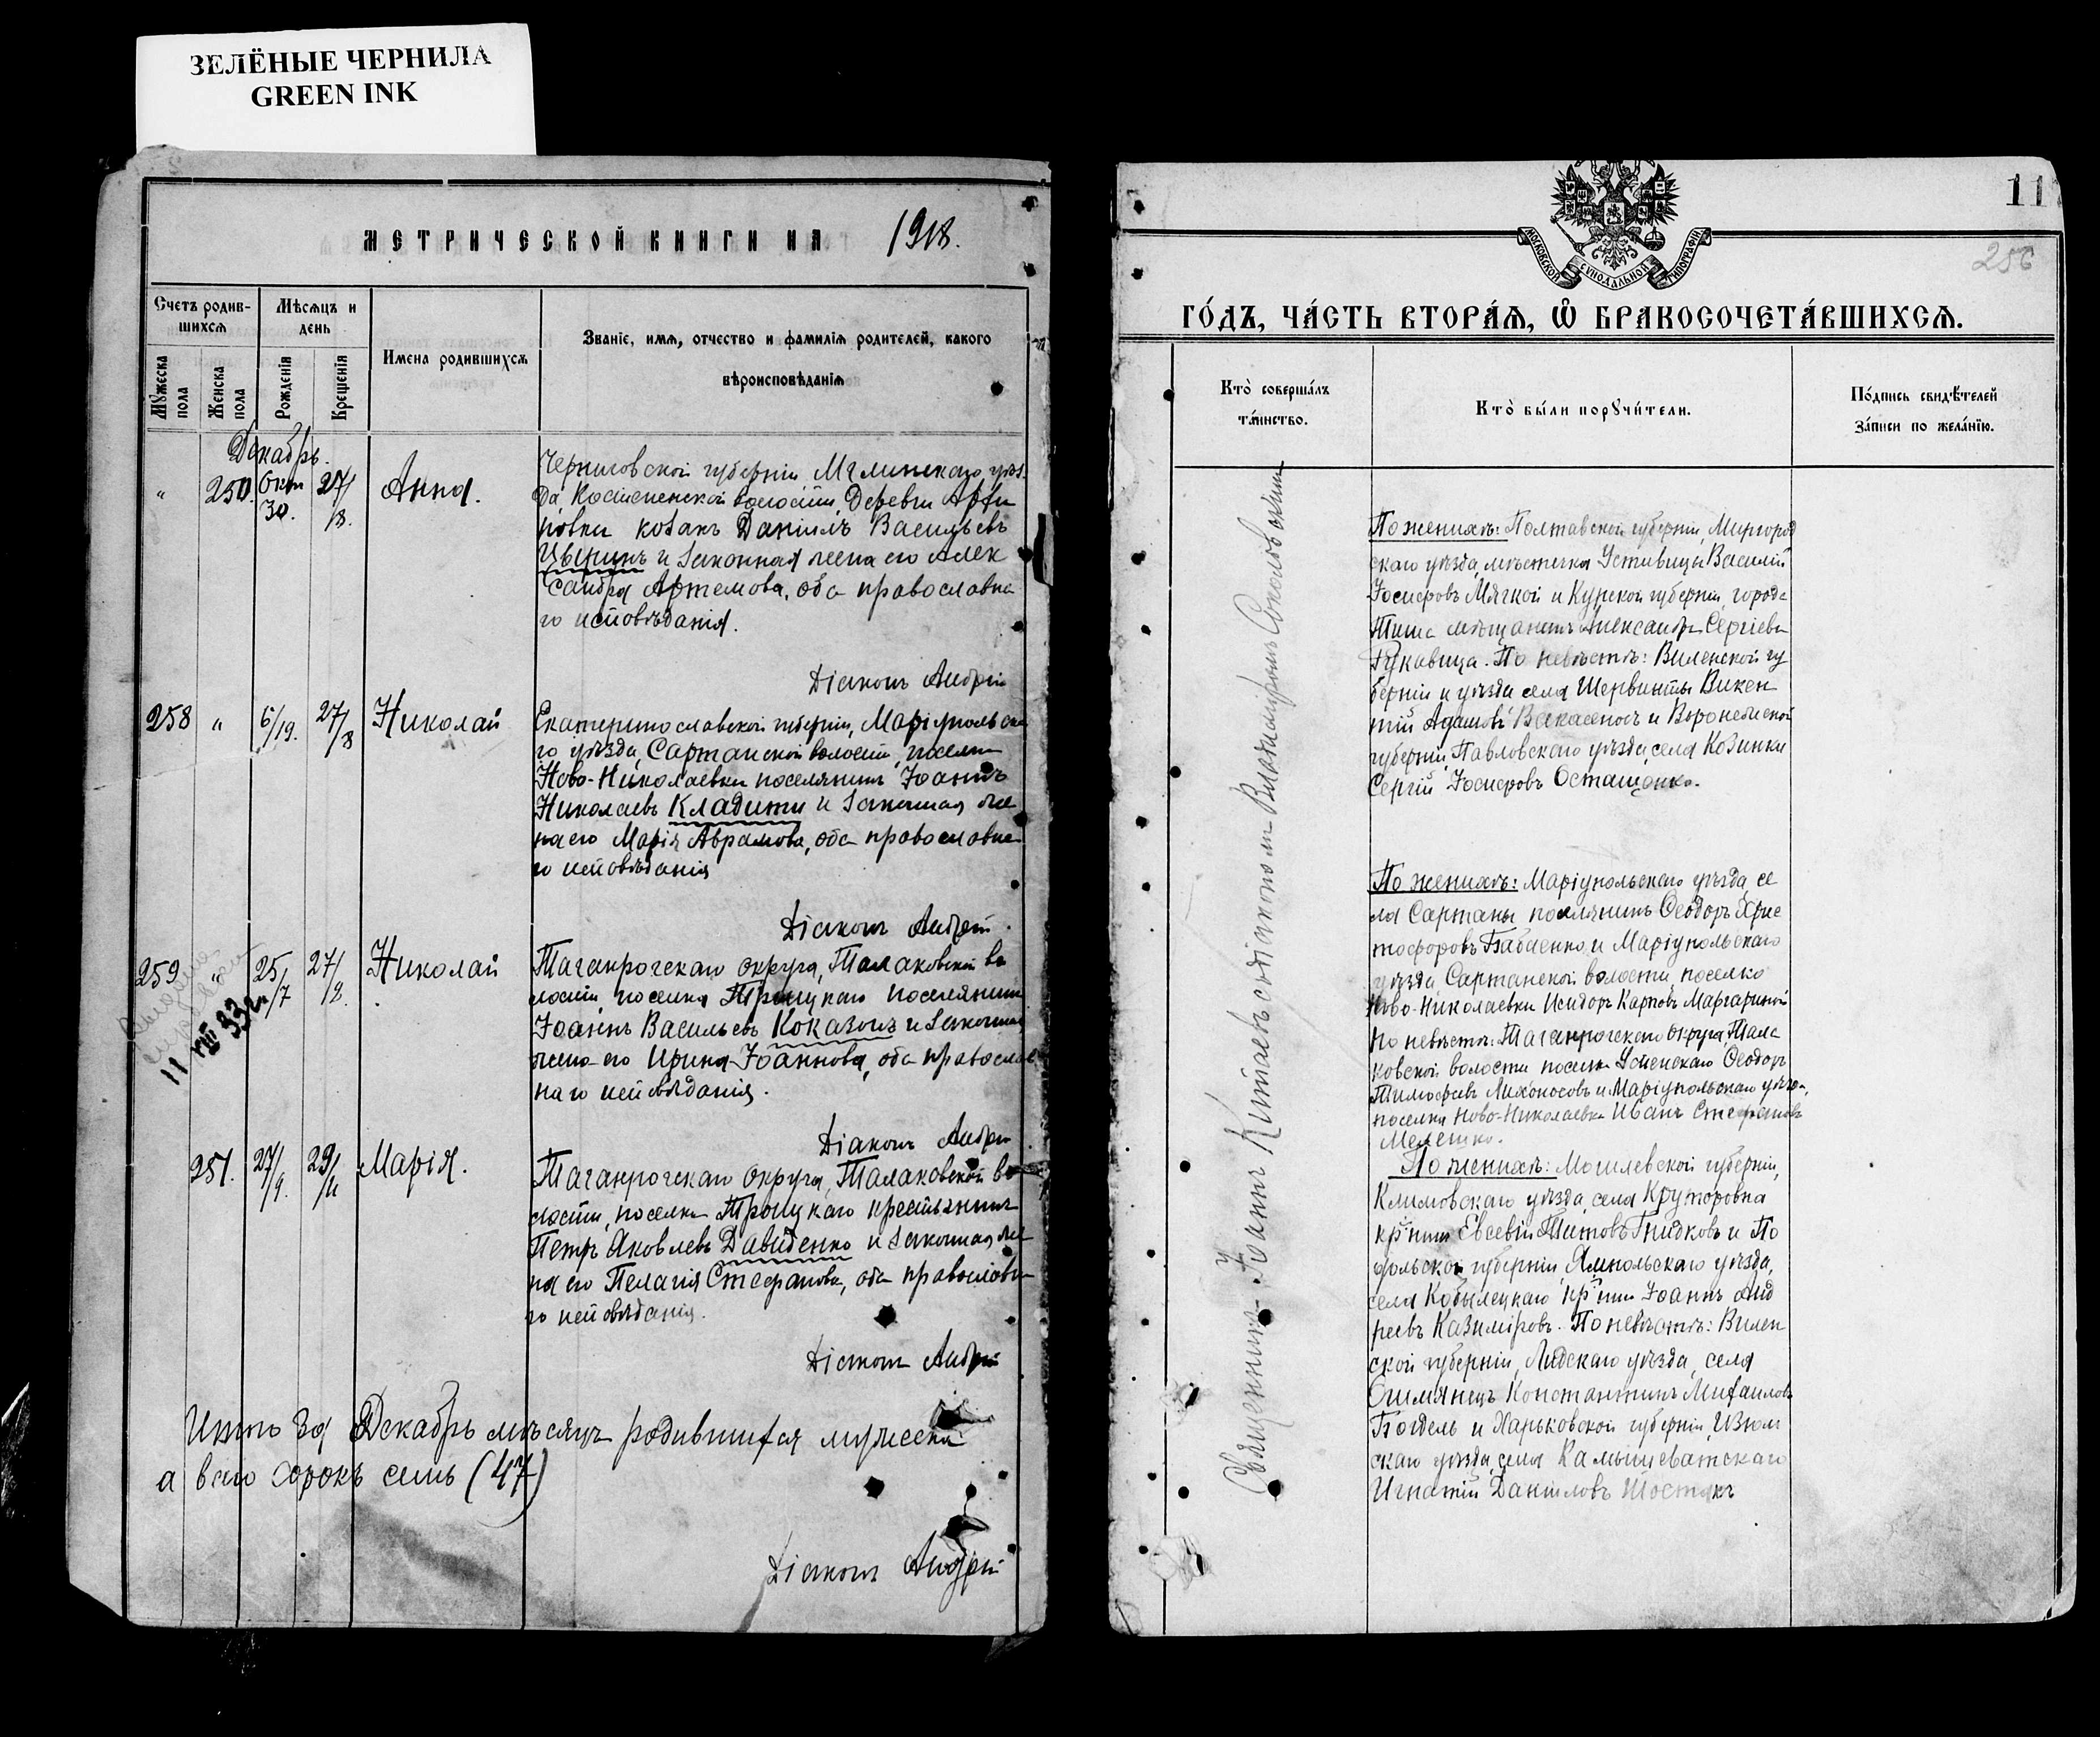 ЗЕЛЁНЫЕ ЧЕРНИЛА
GREEN INK
МЕТРИЧЕСКОЙ КНИГИ НА 1918.
Счетъ родив-
шихсѧ
Мужеска пола
Женска пола
Мѣсѧцъ и
день
Рожденїѧ
Крещенїѧ
Имена родившихсѧ
Званїе, имѧ, отчество и фамилїѧ родителей, какого
вѣроисповѣданїѧ
Декабрь.
" 250. Окт 30. 27/18. Анна.
Черниговской губернiи Мглинскаго уѣз
да, Костенской волости, Деревни
козакъ Данiилъ Васильевъ
и законная жена его Алек
сандра Артемова, оба православна
го исповѣданiя.
Дiаконъ Андрей
258 " 6/19. 27/8 Николай
Екатеринославской губернiи, Марiупольска
го уѣзда, Сартанской волости, поселка
Ново-Николаевки поселянинъ Iоаннъ
Николаевъ Кладити и законная же
на его Марiя Аврамова, оба православна
го исповѣданiя
Дiаконъ Андрей
259 " 25/7 27/8. Николай
11 VIII 33
Таганрогскаго округа, Талаковской во
лости поселка Троицкаго поселянинъ
Iоаннъ Васильевъ Коказонъ и законная
жена его Ирина Iоаннова, оба православ
наго исповѣданiя.
Дiаконъ Андрей
251. 27/9. 29/11 Марiя.
Таганрогскаго округа, Талаковской во
лости, поселка Троицкаго крестьянинъ
Петръ Яковлевъ Давиденко и законная же
на его Пелагiя Стефанова, оба православна
го исповѣданiя.
Дiаконъ Андрей
Итого за Декабрь мѣсяцъ родившихся мужеска
а всего сорокъ семь (47)
Дiаконъ Андрей
11
256
МОСКОВСКОЙ СУНОДАЛЬНОЙ ТИПОГРАФІИ
ГО́ДЪ, ЧА́СТЬ ВТОРА́Ѧ, Ѽ БРАКОСОЧЕТА́ВШИХСѦ.
Кто̀ соверша́лъ
та́инство.
Кто̀ бы́ли порꙋчи́тели.
По́дпись свидѣ́телей
за́писи по жела́нїю.
Священникъ Iоаннъ Китаевъ съ дiакономъ Владимiромъ Соколовскимъ
По женихѣ: Полтавской губернiи, Миргород
скаго уѣзда, мѣстечка Устивицы Василiй
Iосифовъ Мягкой и Курской губернiи, города
Тима мѣщанинъ Александръ Сергiевъ
Рукавица. По невѣстѣ: Виленской гу
бернiи и уѣзда села Шервинты Викен
тiй Адамовъ и Воронежской
губернiи, Павловскаго уѣзда, села Козинки
Сергiй Iосифовъ Осташенко.
По женихѣ: Марiупольскаго уѣзда, се
ла Сартаны поселянинъ Ѳеодоръ Хрис
тофоровъ Бабасенко и Марiупольскаго
уѣзда, Сартанской волости, поселка
Ново-Николаевки Исидоръ Карповъ Маргариной
По невѣстѣ: Таганрогскаго округа, Тала
ковской волости поселка Успенскаго Ѳеодоръ
Тимофеевъ Лихоносовъ и Марiупольскаго уѣзда,
поселка Ново-Николаевка Иванъ Стефановъ
Мелешко.
По женихѣ: Могилевской губернiи,
Климовскаго уѣзда, села
кр-нинъ Евсевiй Титовъ Гнидковъ и По
дольской губернiи, Ямпольскаго уѣзда,
села Кобылецкаго кр-нинъ Iоаннъ Анд
реевъ Казимiровъ. По невѣстѣ: Вилен
ской губернiи, Лидскаго уѣзда, села
Константинъ Михаиловъ
Богдель и Харьковской губернiи, Изюм
скаго уѣзда, села Камышеватскаго
Игнатiй Данiиловъ Шостакъ